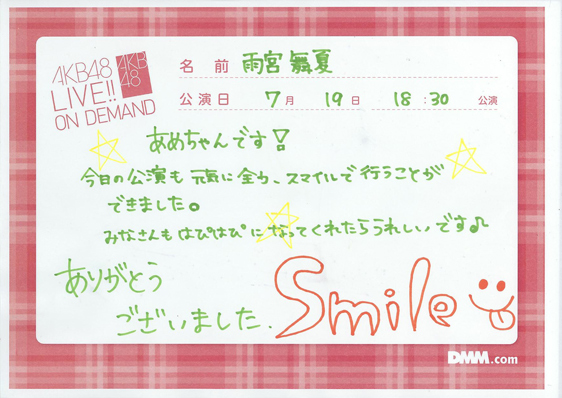 AKB48
LIVE!!
ON DEMAND
AKB
48
名 前 雨宮 舞夏
公演日 7月 19日 18:30 公演
あめちゃんです!
今日の公演も 元気に全力、スマイルで行うことが
できました。
みなさんも はぴはぴに なってくれたらうれしいです♪
ありがとう
ございました.
Smile
DMM.com